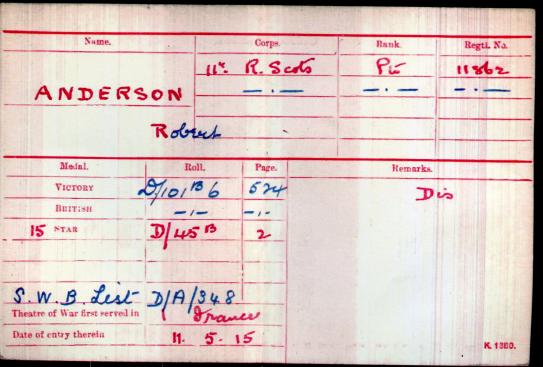 Name. Corps. Rank. Regtl. No.
11th R. Scots Pte 11862
ANDERSON — . — — . — — . —
Robert
Medal. Roll. Page. Remarks.
VICTORY D/101 B 6 524 Dis
BRITISH — . — — . —
15 STAR D/45 B 2
S.W.B. List D/A/348
Theatre of War first served in 1 France
Date of entry therein 11. 5. 15
K. 1380.